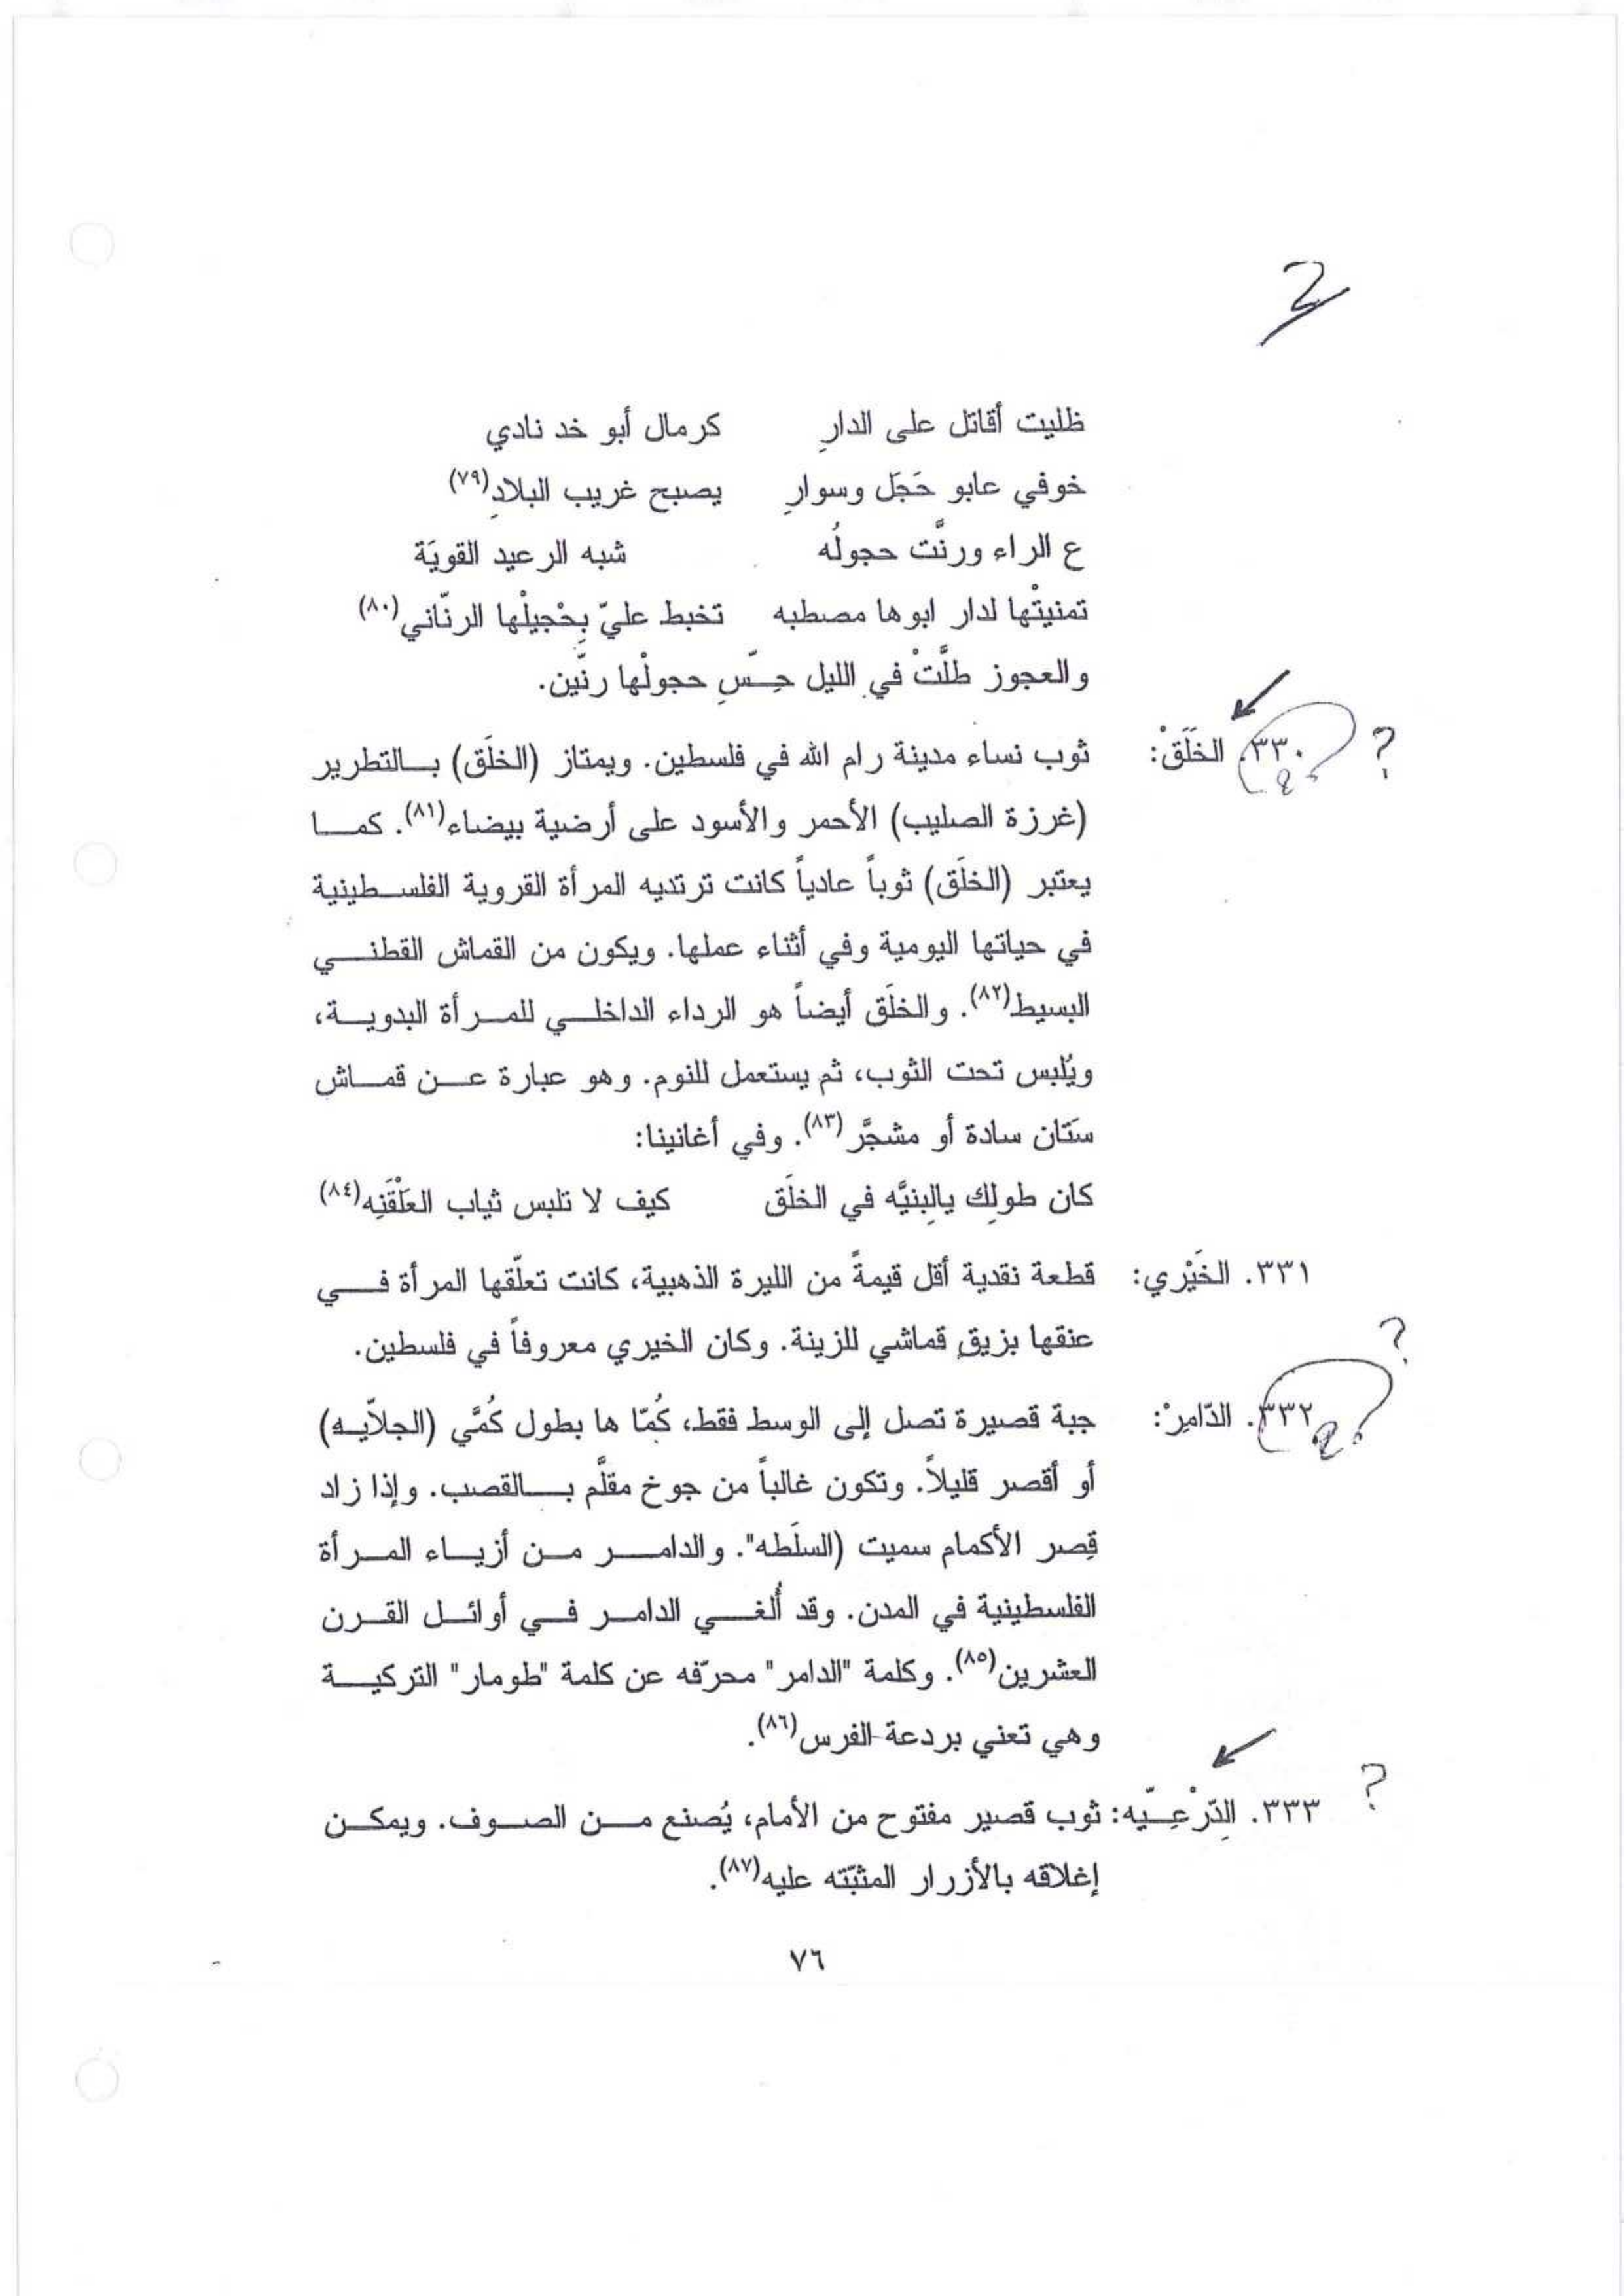 2
ظليت أقاتل على الدارِ كرمال أبو خد نادي
خوفي عابو حَجَل وسوارِ يصبح غريب البلادِ(٧٩)
ع الراء ورنَّت حجولُه شبه الرعيد القويَة
تمنيتْها لدار ابوها مصطبه تخبط عليّ بِحْجيلْها الرنّاني(٨٠)
والعجوز طلَّتْ في الليل حِسّ حجولْها رنَّين.
؟
٣٣٠. الخَلَقْ: ثوب نساء مدينة رام الله في فلسطين. ويمتاز (الخلَق) بالتطرير
(غرزة الصليب) الأحمر والأسود على أرضية بيضاء(٨١). كما
يعتبر (الخلَق) ثوباً عادياً كانت ترتديه المرأة القروية الفلسطينية
في حياتها اليومية وفي أثناء عملها. ويكون من القماش القطني
البسيط(٨٢). والخلَق أيضاً هو الرداء الداخلي للمرأة البدوية،
ويُلبس تحت الثوب، ثم يستعمل للنوم. وهو عبارة عن قماش
ستَان سادة أو مشجَّر(٨٣). وفي أغانينا:
كان طولِك يالبِنيَّه في الخلَق كيف لا تلبس ثياب العَلْقَنِه(٨٤)
٣٣١. الخَيْري: قطعة نقدية أقل قيمةً من الليرة الذهبية، كانت تعلّقها المرأة في
عنقها بزيقِ قماشي للزينة. وكان الخيري معروفاً في فلسطين.
؟
٣٣٢. الدّامِرْ: جبة قصيرة تصل إلى الوسط فقط، كُمّا ها بطول كُمَّي (الجلاّيه)
أو أقصر قليلاً. وتكون غالباً من جوخ مقلَّم بالقصب. وإذا زاد
قِصر الأكمام سميت (السلَطه". والدامر من أزياء المرأة
الفلسطينية في المدن. وقد أُلغي الدامر في أوائل القرن
العشرين(٨٥). وكلمة "الدامر" محرّفه عن كلمة "طومار" التركية
وهي تعني بردعة الفرس(٨٦).
؟
٣٣٣. الِدّرْعِيّه: ثوب قصير مفتوح من الأمام، يُصنع من الصوف. ويمكن
إغلاقه بالأزرار المثبّته عليه(٨٧).
٧٦